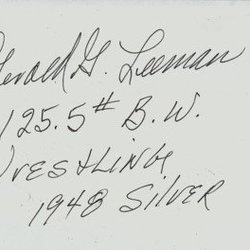 Gerald G. Leeman
125.5# B.W.
WRESTLING
1948 SILVER